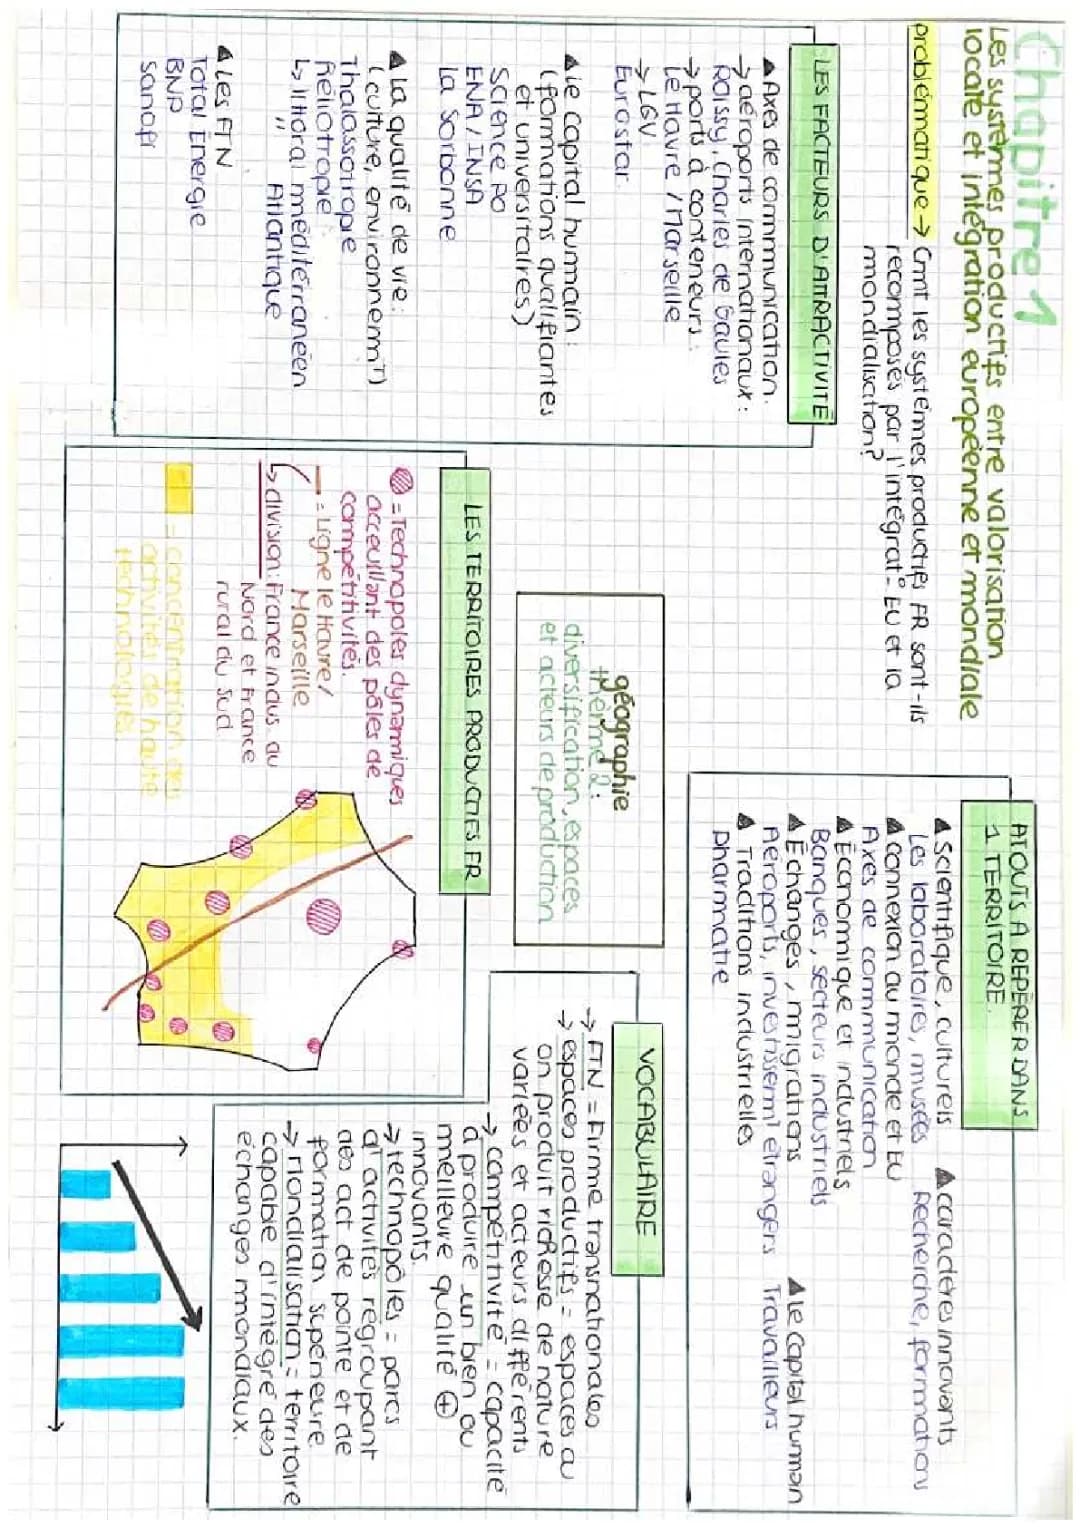 Chapitre 1
Les systèmes productifs entre valorisation
locale et intégration européenne et mondiale
problématique → Cmt les systèmes productifs FR sont-ils
recomposés par l'intégrat° EU et la
mondialisation?
LES FACTEURS D'ATTRACTIVITÉ
▲ Axes de communication.
→ aéroports internationaux :
Roissy, Charles de Gaules
→ ports à conteneurs :
Le Havre / Marseille
→ LGV
Eurostar
▲ le capital humain :
(formations qualifiantes
et universitaires)
Science PO
ENA / INSA
La Sorbonne
▲ La qualité de vie :
(culture, environnemt)
Thalassotropie
Héliotropie
↳ littoral méditérranéen
" Atlantique
▲ Les FTN
Total Energie
BNP
Sanofi
géographie
thème 2 :
diversification, espaces
et acteurs de production
LES TERRITOIRES PRODUCTIFS FR
= Technopoles dynamiques
acceuillant des pôles de
compétitivités.
— = Ligne le Havre /
Marseille
↳ division : France indus. au
Nord et France
rural du Sud
= concentration des
activités de haute
technologies
ATOUTS A REPÉRER DANS
1 TERRITOIRE
▲ Scientifique, culturels
Les laboratoires, musées
▲ caractères innovants
Recherche, formations
▲ connexion au monde et EU
Axes de communication
▲ Économique et industriels
Banques, secteurs industriels
▲ Échanges, migrations
Aéroports, investissemt étrangers
▲ Le capital humain
Travailleurs
▲ Traditions industrielles
pharmatie
VOCABULAIRE
→ FTN = Firme transnationales
→ espaces productifs = espaces où
on produit richesse de nature
variées et acteurs différents
→ compétitivité = capacité
à produire un bien ou
meilleure qualité ⊕
innovants.
→ technopôles = parcs
d'activités regroupant
des act de pointe et de
formation supérieure
→ mondialisation = territoire
capable d'intégré des
échanges mondiaux.